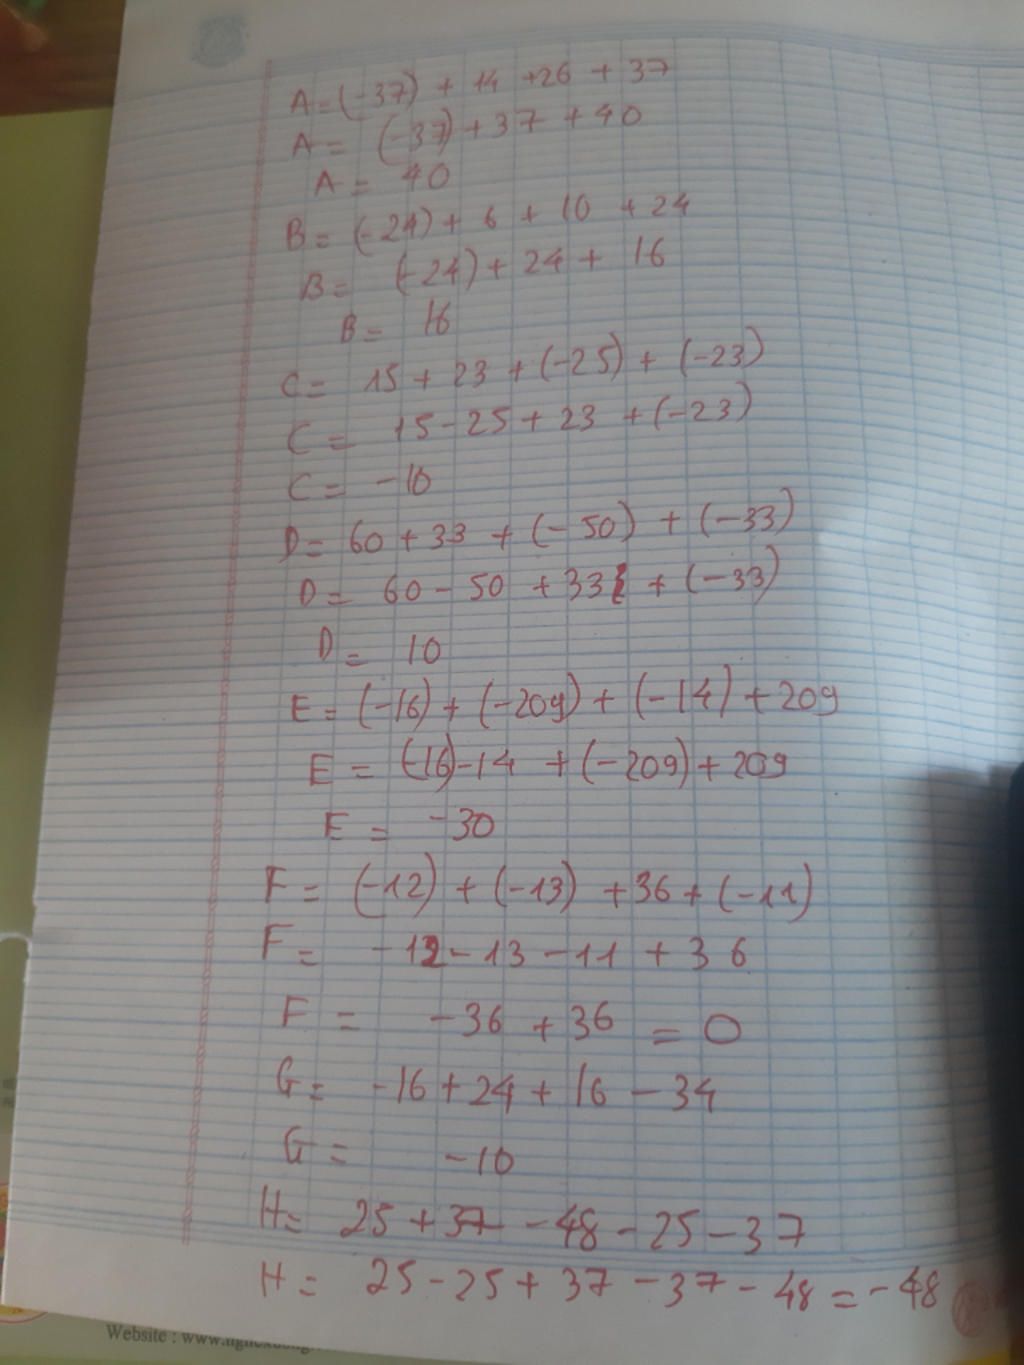 A = (-37) + 14 +26 + 37
A = (-37) + 37 + 40
A = 40
B = (-24) + 6 + 10 + 24
B = (-24) + 24 + 16
B = 16
C = 15 + 23 + (-25) + (-23)
C = 15 - 25 + 23 + (-23)
C = -10
D = 60 + 33 + (-50) + (-33)
D = 60 - 50 + 33 + (-33)
D = 10
E = (-16) + (-209) + (-14) + 209
E = (-16) - 14 + (-209) + 209
E = -30
F = (-12) + (-13) + 36 + (-11)
F = -12 - 13 - 11 + 36
F = -36 + 36 = 0
G = -16 + 24 + 16 - 34
G = -10
H = 25 + 37 - 48 - 25 - 37
H = 25 - 25 + 37 - 37 - 48 = -48
Website : www.